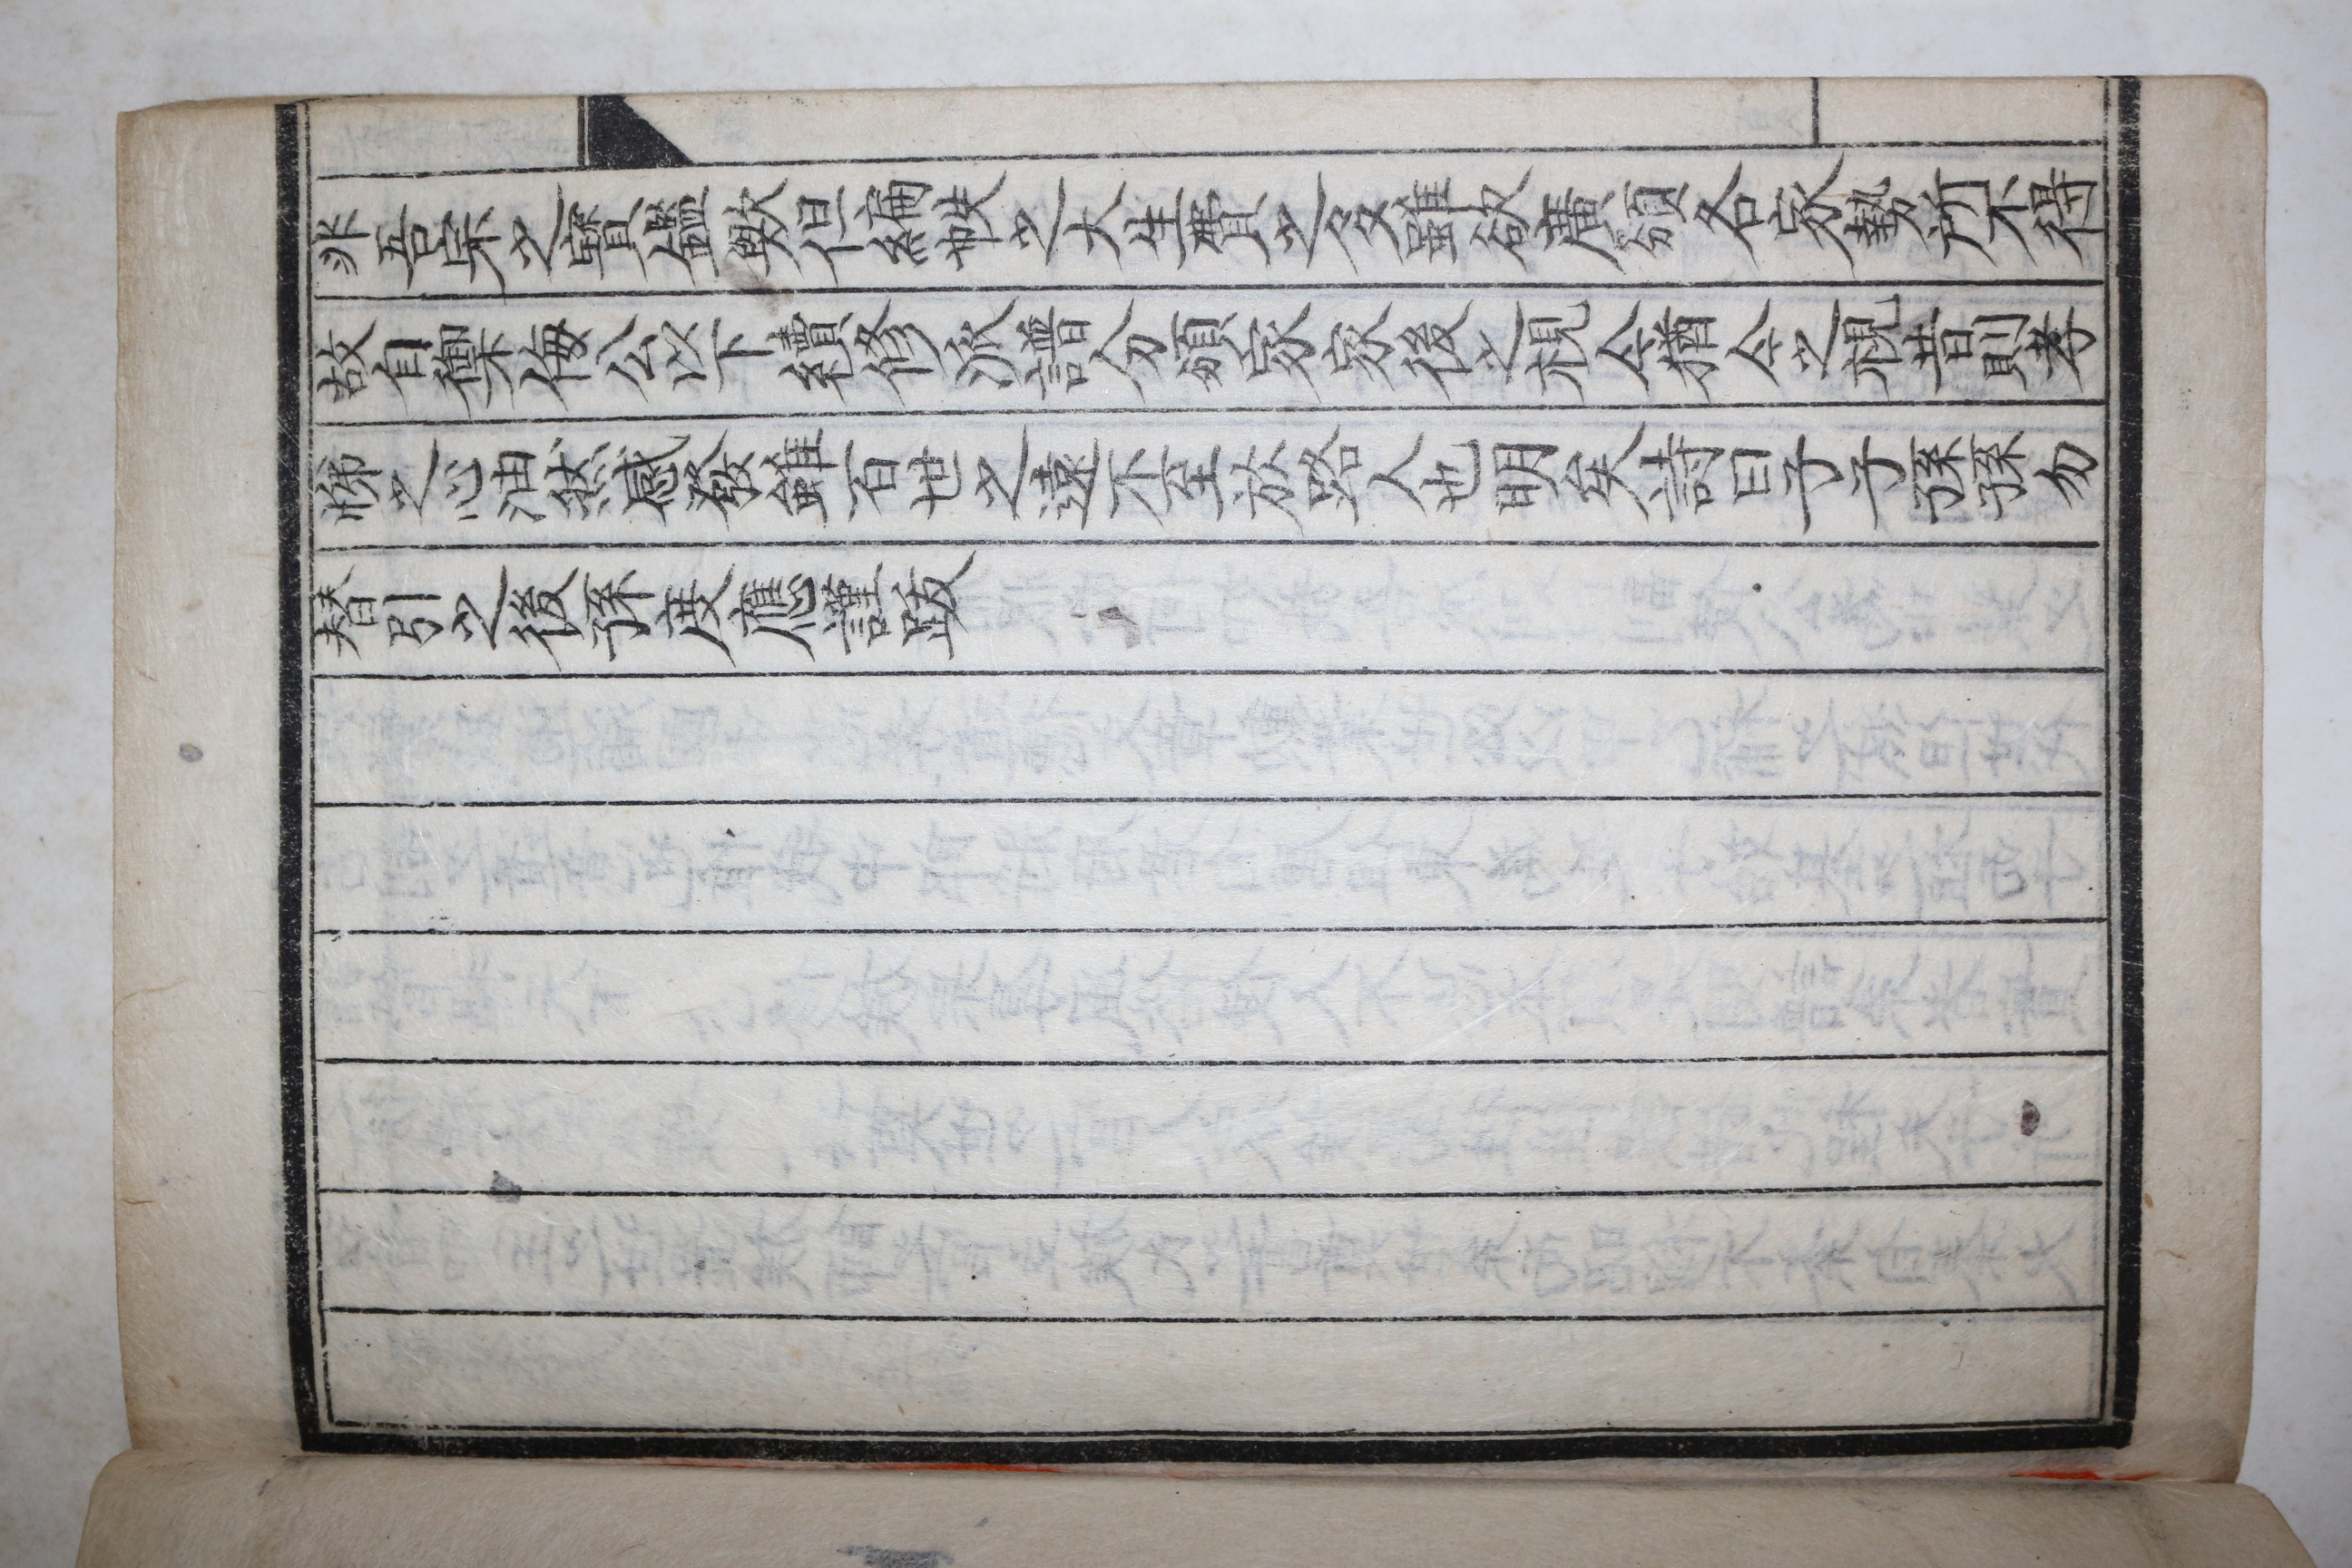 非吾宗之寶鑑歟但編帙之大生費之多雖欲廣頒各家勢所不得
故自禦侮公以下續修派譜分頒家家後之視今猶今之視昔則孝
悌之心油然感發雖百世之遠不至於路人也明矣詩曰子子孫孫勿
替引之後孫度應謹跋